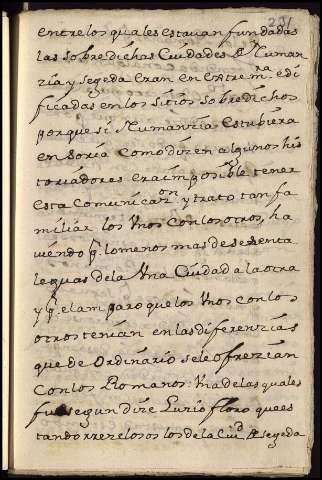 231
entre los quales estauan fundadas
las sobredichas Ciudades de Numan
zia y segeda eran en Extremra. edi
ficadas en los sitios sobredichos
porque si Numanzia Estubiera
en Soria como dizen algunos his
toriadores era imposible tener
esta Comunicazon. y trato tan fa
miliar los Unos con los otros, ha
uiendo pr. lo menos mas de sesenta
leguas de la Una Ciudad a la otra
y qe. el amparo que los Unos con los
otros tenian en las diferenzias
que de Ordinario se le ofrezian
con los Romanos: Una de las quales
fue segun dize Luzio floro que es
tando rrezelosos los de la Ciud. de segeda